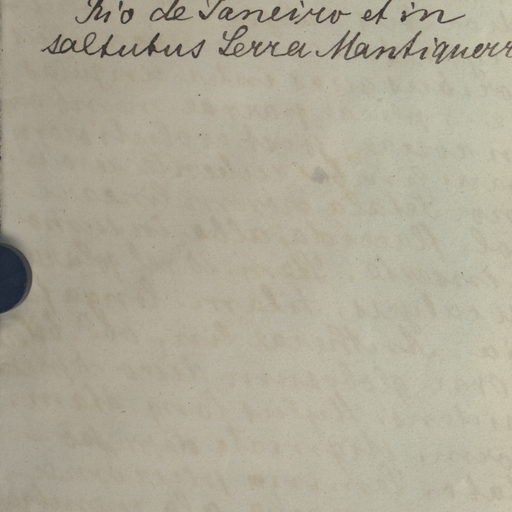 Rio de Janeiro et in
saltubus Serra Mantiquerr